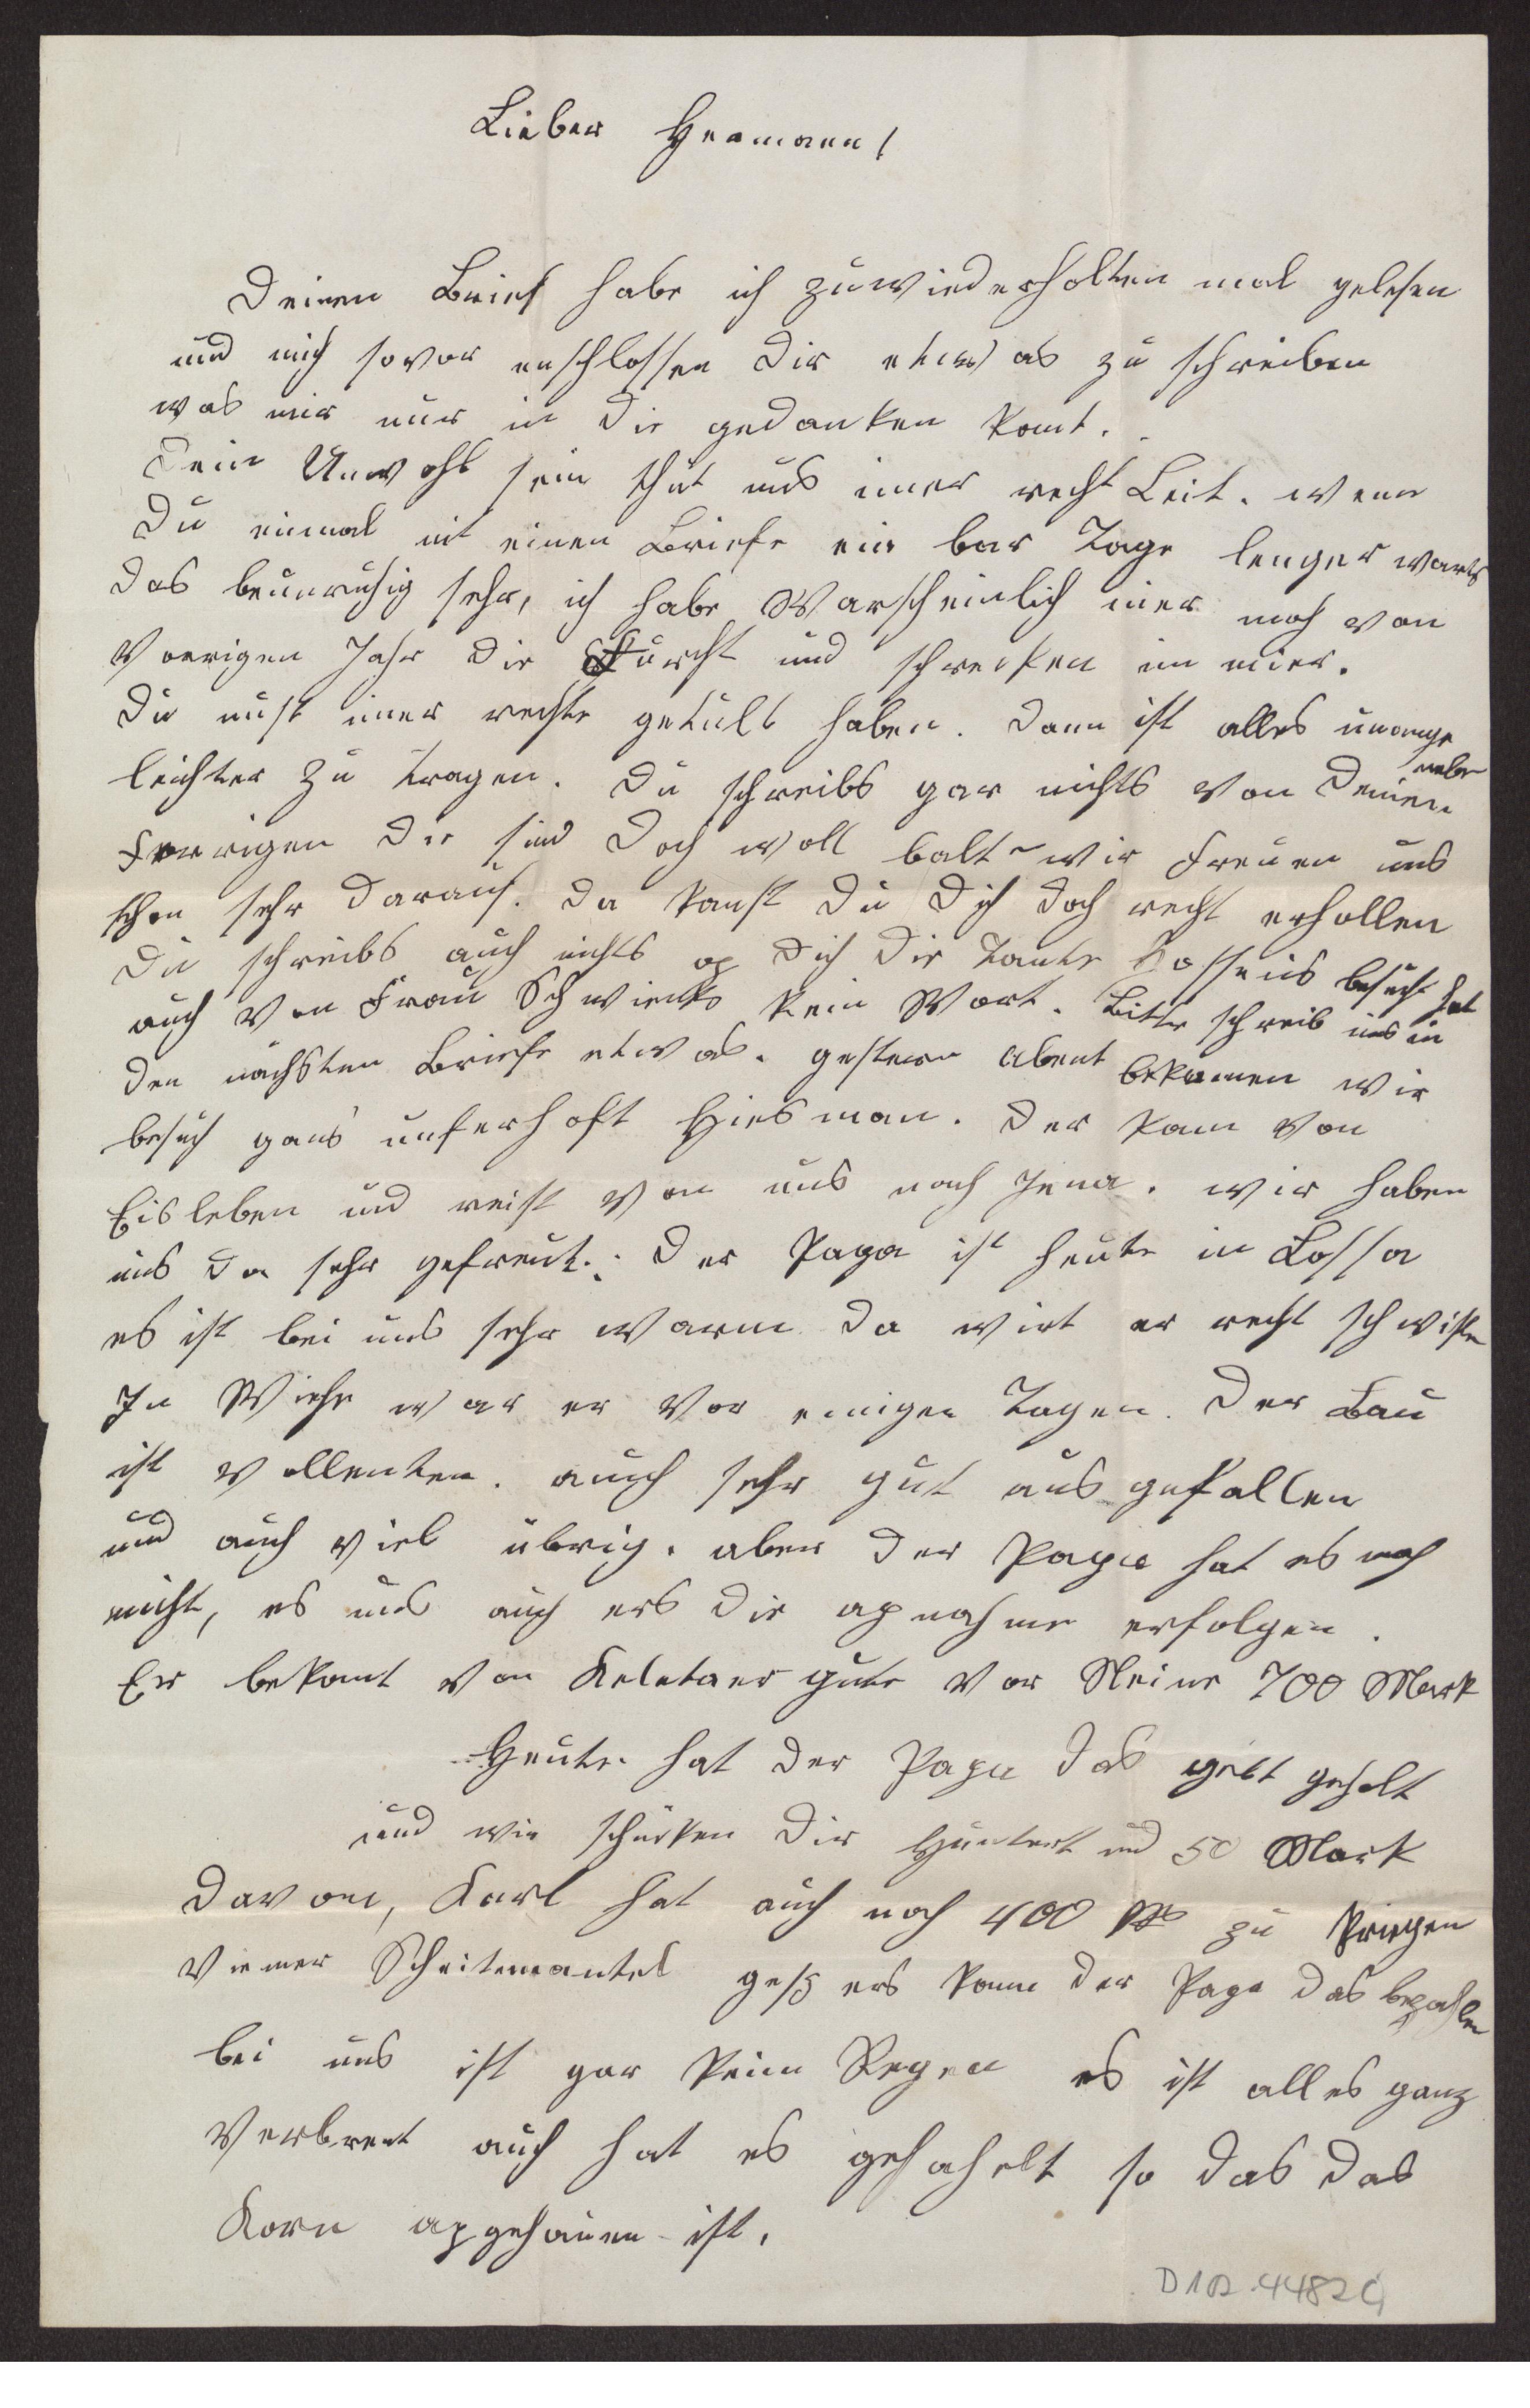 Lieber Hermann!
Deinen Brief habe ich zuwiederholten mal gelesen
und mich sovor enschlossen Dir etwas zu schreiben
was mir nur in die gedanken komt.
Dein Unwohl sein thut uns imer recht Leit. wenn
Du einmal mit einen Briefe ein bar Tage lenger warts
das beunruhig sehr, ich habe Warscheinlich imer noch von
Vorrigen Jahr die Furcht und schrecken in mier.
Du must imer rechte getult haben. Dann ist alles unange
nehme
leichter zu tragen. Du schreibs gar nichts von Deinen
Ferrigen die sind doch woll balt wir Freuen uns
schon sehr darauf. Da kanst Du Dich doch recht erhollen
Du schreibs auch nichts op Dich die Tante besucht hat
auch von Frau kein Wort. Bitte schreib uns in
den nächsten Briefe etwas. gestern Abent bekamen wir
besuch gans unferhoft Hiesman. Der kam von
Eisleben und reist von uns nach Jena. wir haben
uns da sehr gefreut. Der Papa ist heute in Lossa
es ist bei uns sehr warm da wirt er recht schwiste
In Wiehe war er vor einigen Tagen. Der Bau
ist vollenten. auch sehr gut aus gefallen
und auch viel übrig. aber der Papa hat es noch
nicht, es mus auch ers die apnahme erfolgen.
Er bekomt von gute vor Steine 700 Mark
Heute hat der Papa das gelt geholt
und wir schücken Dir Huntert und 50 Mark
davon, Karl hat auch noch 400 M zu kriegen
Scheitemantel ers kann der Papa das bezahlen
bei uns ist gar kein Regen es ist alles ganz
Verbrent auch hat es gehahelt so das das
Korn apgehauen ist.
D 102.4482